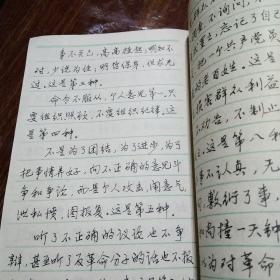 事不关己，高高挂起，明知不
对，少说为佳；明哲保身，但求无
过。这是第三种。
命令不服从，个人意见第一。只
要组织照顾，不要组织纪律。这
是第四种。
不是为了团结，为了进步，为了
把事情弄好，向不正确的意见斗
争和争论，而是个人攻击，闹意气，
泄私愤，图报复。这是第五种。
听了不正确的议论也不争
辩，甚至听了反革命分子的话也不报
不询问，
忘记了自己
一个共产党员
的老百姓。这是
害群众利益
不制止
这是第八种
不认真，无
敷衍了事，
和尚撞一天钟
为对革命